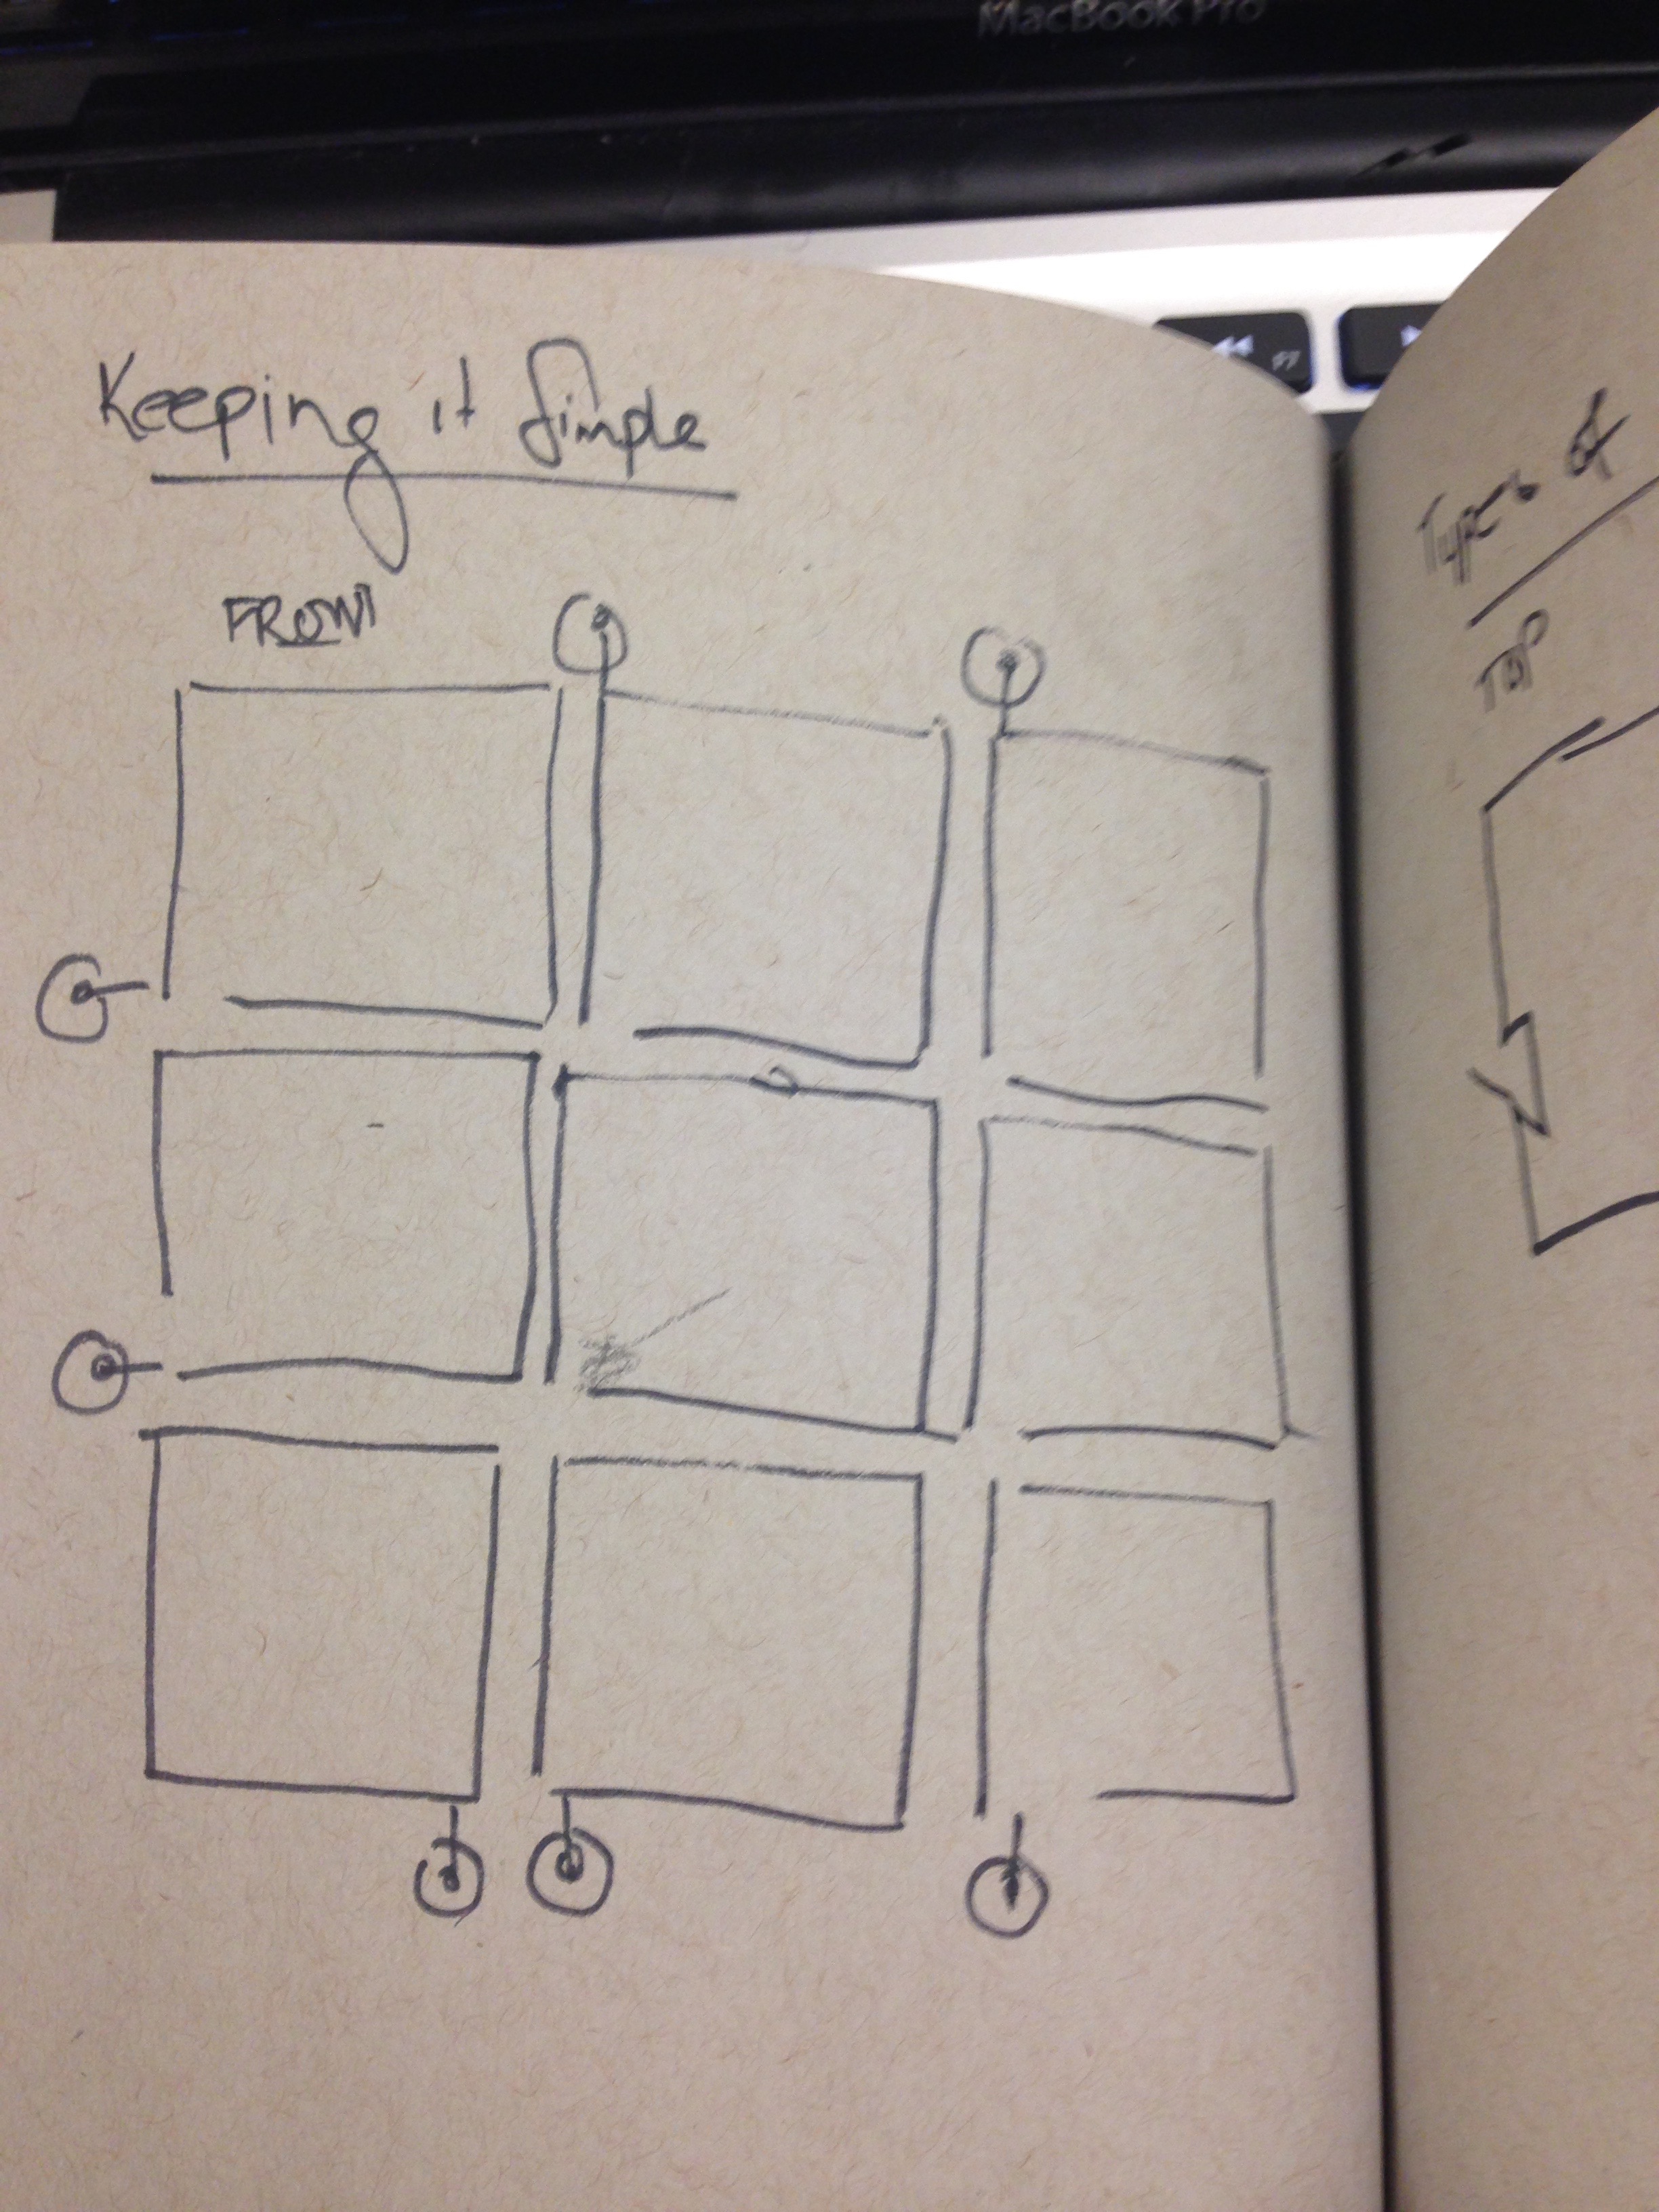 MacBook Pro
F7
Keeping it Simple
FRONT
Types of
TOP